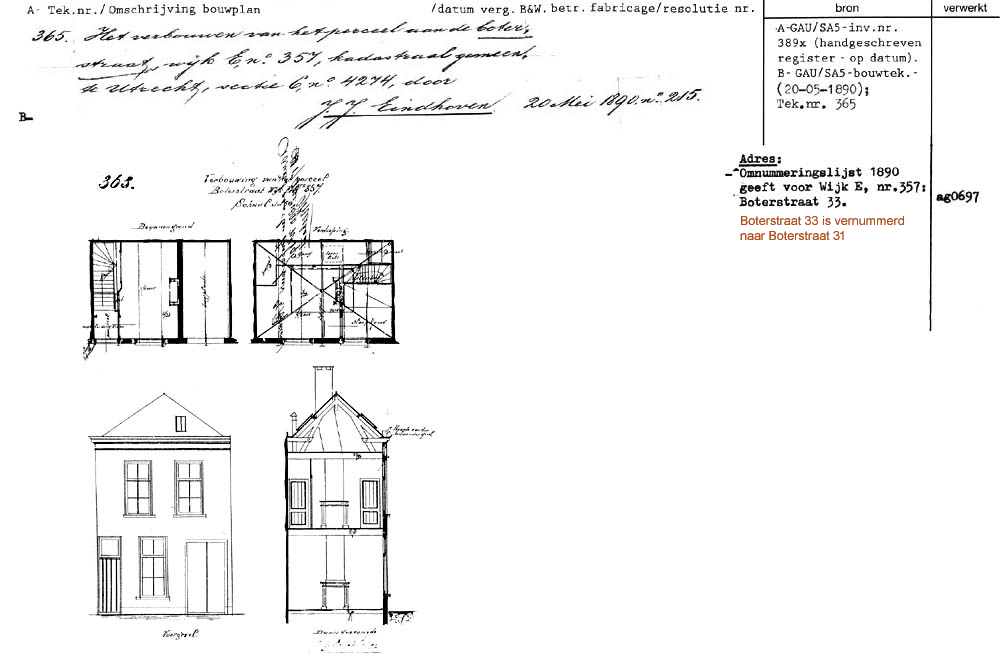 A- Tek.nr./ Omschrijving bouwplan /datum verg. B&W. betr. fabricage/resolutie nr. bron verwerkt
365. Het verbouwen van het perceel aan de boter-
straat, wijk E, no. 357, kadastraal gemeente
te Utrecht, sectie C, no. 4274, door
J. J. Eindhoven 20 Mei 1890. no. 215.
B-
A-GAU/SA5-inv.nr.
389x (handgeschreven
register - op datum).
B- GAU/SA5-bouwtek.-
(20-05-1890);
Tek.nr. 365
Adres:
Omnummeringslijst 1890
geeft voor Wijk E, nr.357:
Boterstraat 33.
Boterstraat 33 is vernummerd
naar Boterstraat 31
ag0697
363.
Verbouwing van het perceel
Boterstraat Wijk E No 357
Schaal
Beganengrond
Verdieping
Voorgevel